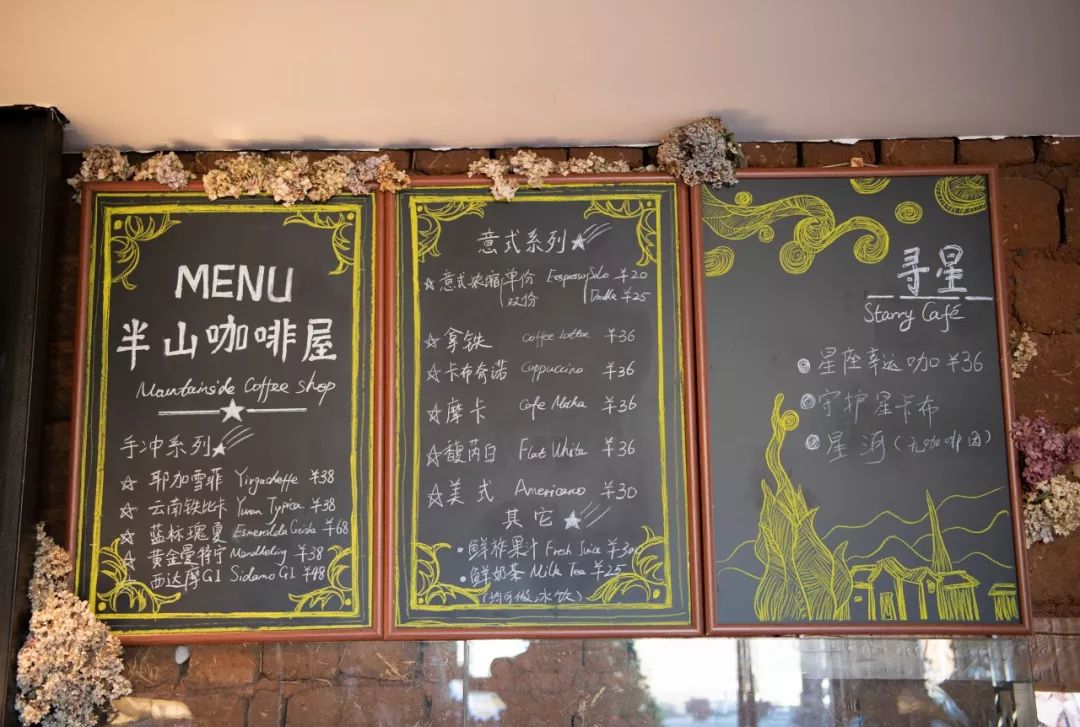 MENU
半山咖啡屋
Mountainside Coffee shop
手冲系列
耶加雪菲 Yirgacheffe ¥38
云南铁比卡 Yunan Typica ¥38
蓝标瑰夏 Esmeralda Geisha ¥68
黄金曼特宁 Mandheling ¥38
西达摩G1 Sidamo G1 ¥48
意式系列
意式浓缩 单份 Espresso Solo ¥20
双份 Double ¥25
拿铁 coffee Latte ¥36
卡布奇诺 Cappuccino ¥36
摩卡 Cafe Mocha ¥36
馥芮白 Flat White ¥36
美式 Americano ¥30
其它
鲜榨果汁 Fresh Juice ¥30
鲜奶茶 Milk Tea ¥25
(均可做冰饮)
寻星
Starry Café
星座幸运咖 ¥36
守护星卡布
星河(无咖啡因)